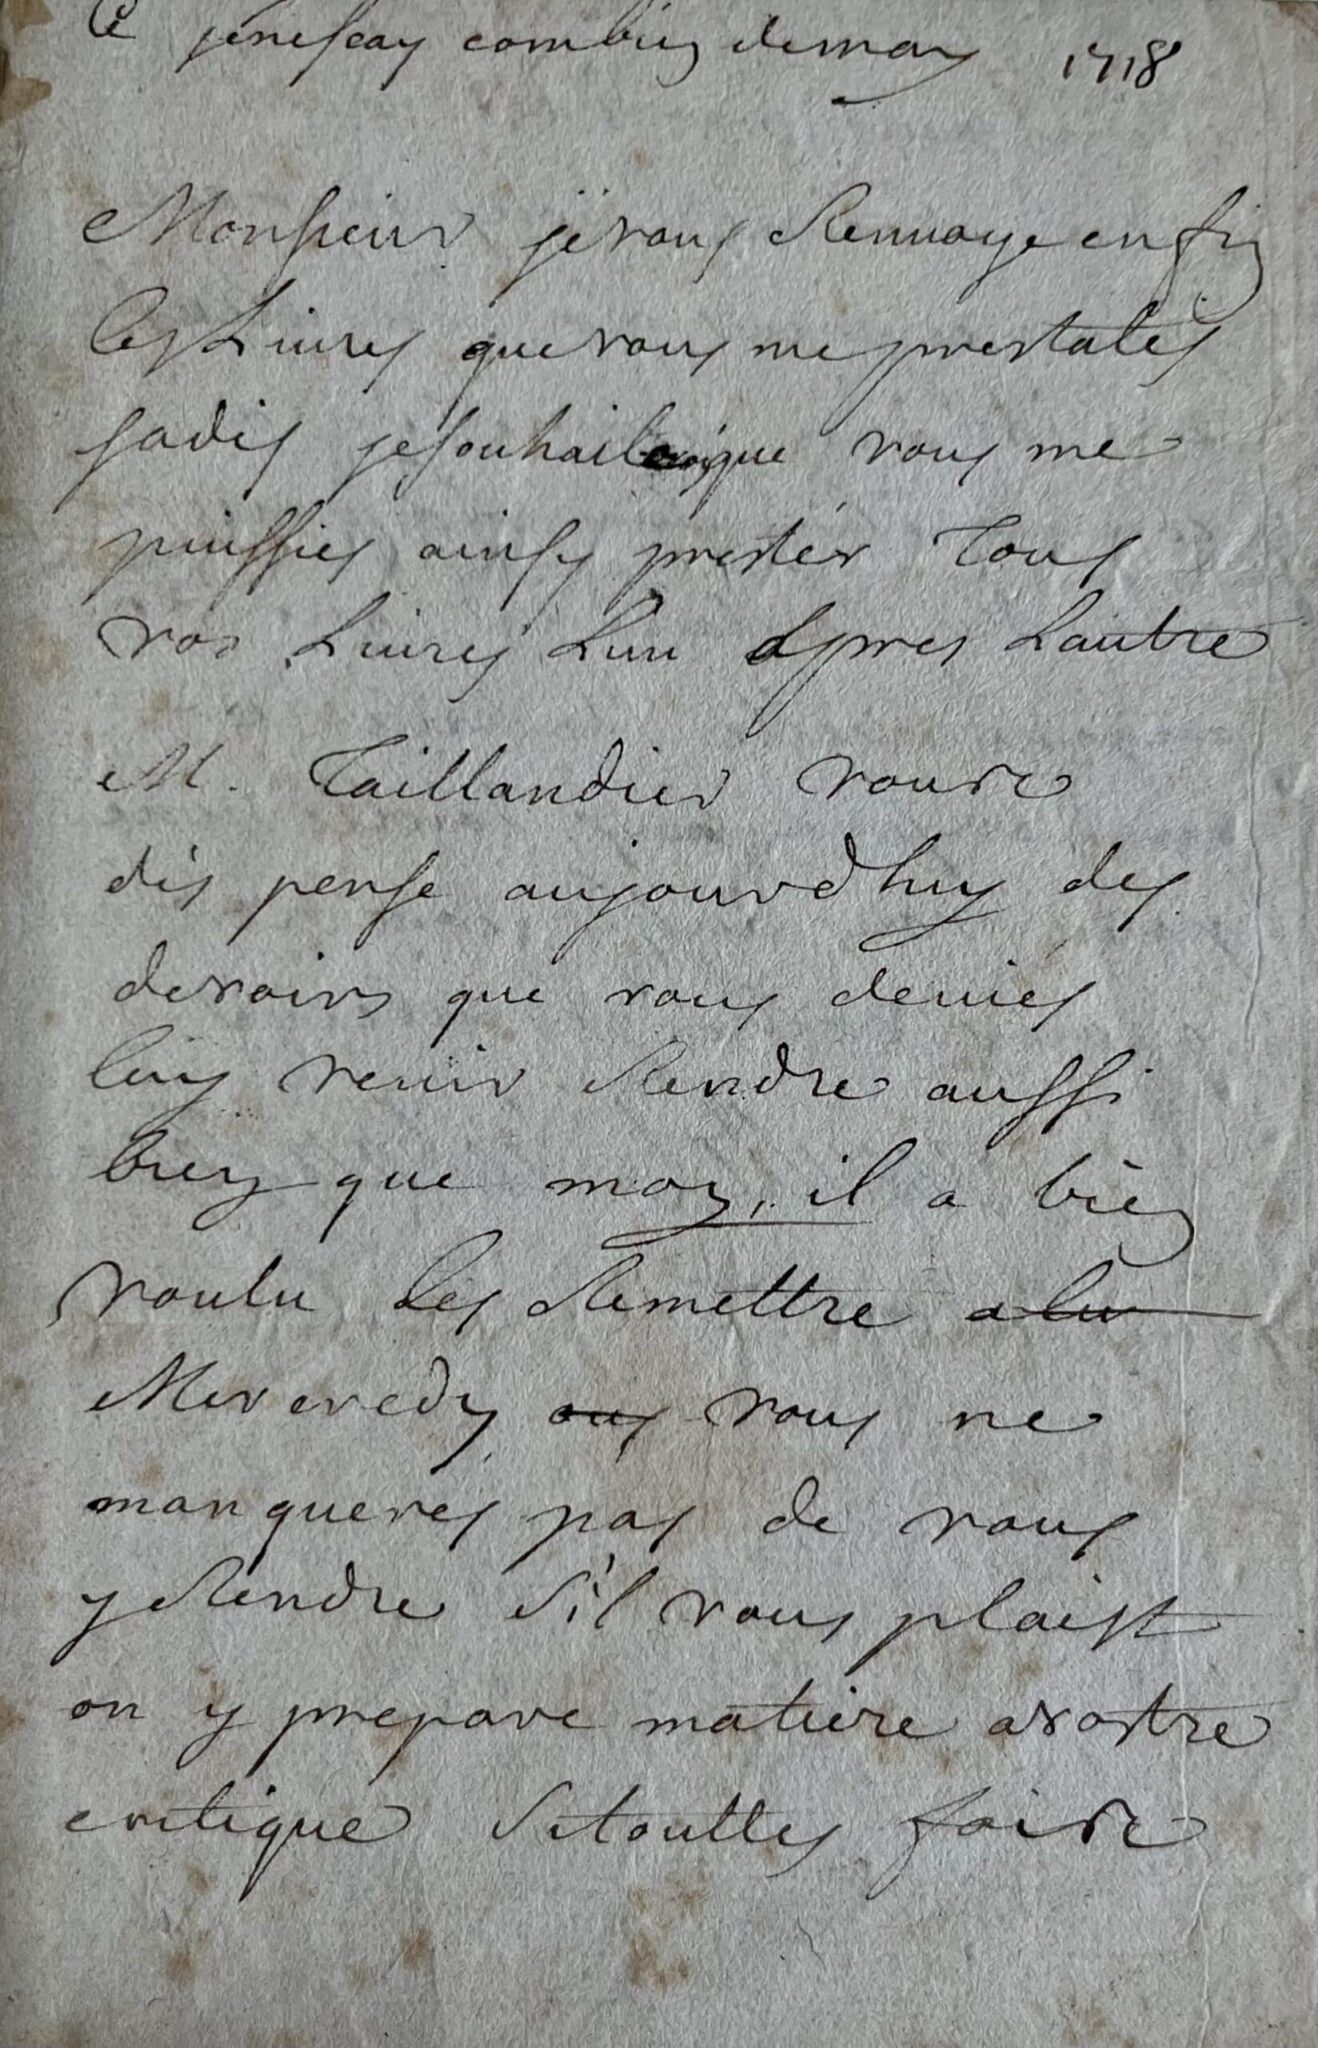 Ce jenescay combien demay 1718
Monsieur je vous Renuoye enfin
les Liures que vous me prestates
jadis je souhaite que vous me
puissies ainsy prester Tous
vos Liures Lun apres Lautre
M. Taillandier vous
dis pense aujourdhuy des
devoirs que vous deuiés
luy venir Rendre aussi
bien que moy, il a bien
voulu les Remettre a
Mercredy vous ne
manqueres pas de vous
y Rendre s'il vous plaist
on y prepare matiere avostre
critique